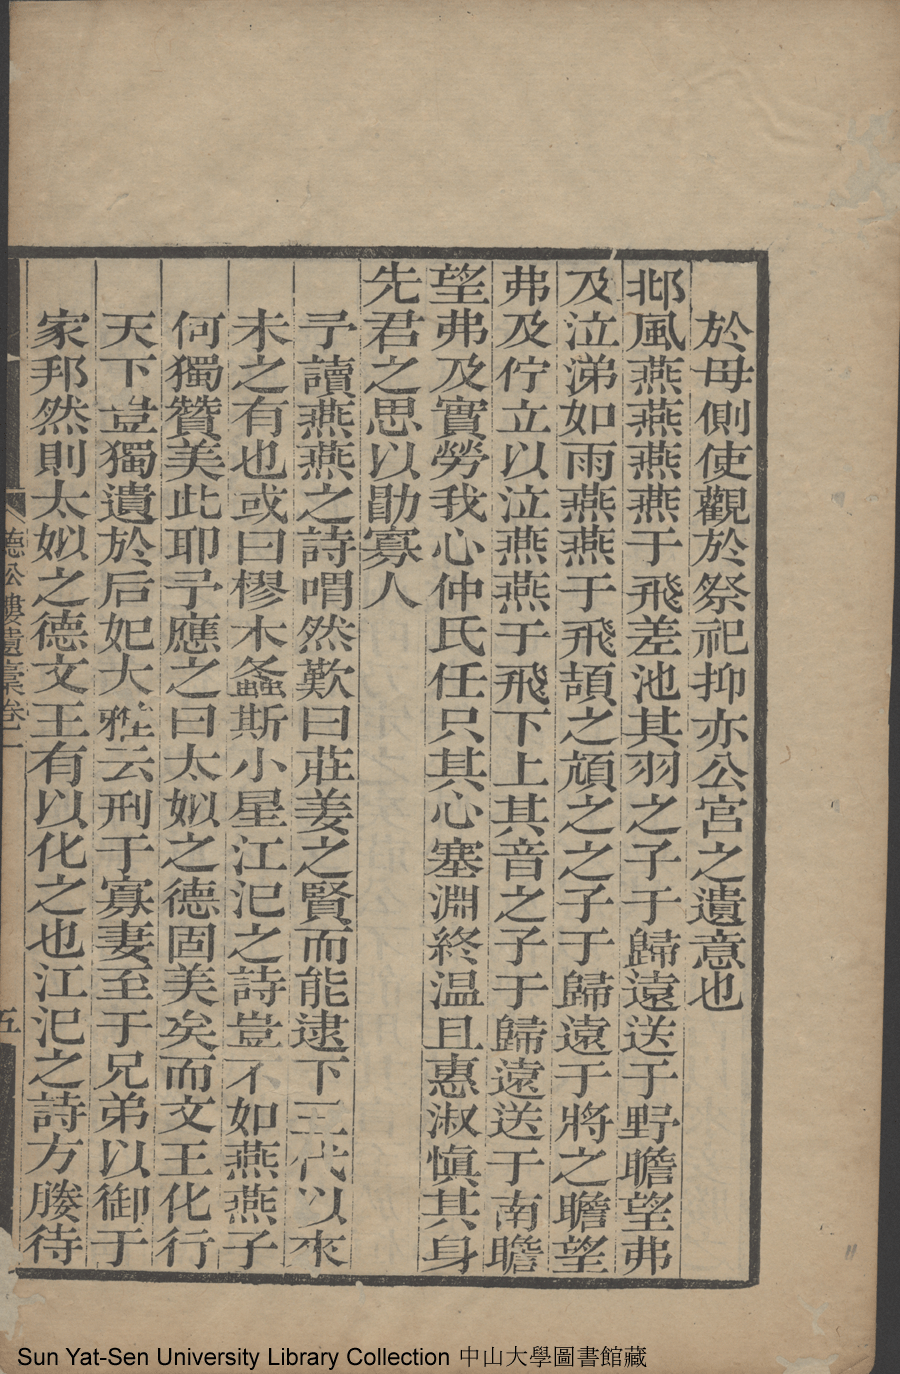 於母側使觀於祭祀抑亦公宮之遺意也
邶風燕燕燕燕于飛差池其羽之子于歸遠送于野瞻望弗
及泣涕如雨燕燕于飛頡之頏之之子于歸遠于將之瞻望
弗及佇立以泣燕燕于飛下上其音之子于歸遠送于南瞻
望弗及實勞我心仲氏任只其心塞淵終温且惠淑愼其身
先君之思以勖寡人
予讀燕燕之詩喟然歎曰莊姜之賢而能逮下三代以來
未之有也或曰樛木螽斯小星江汜之詩豈不如燕燕子
何獨贊美此耶予應之曰太姒之德固美矣而文王化行
天下豈獨遺於后妃大雅云刑于寡妻至于兄弟以御于
家邦然則太姒之德文王有以化之也江汜之詩方媵待
德公樓遺稾卷二
五
Sun Yat-Sen University Library Collection 中山大學圖書館藏